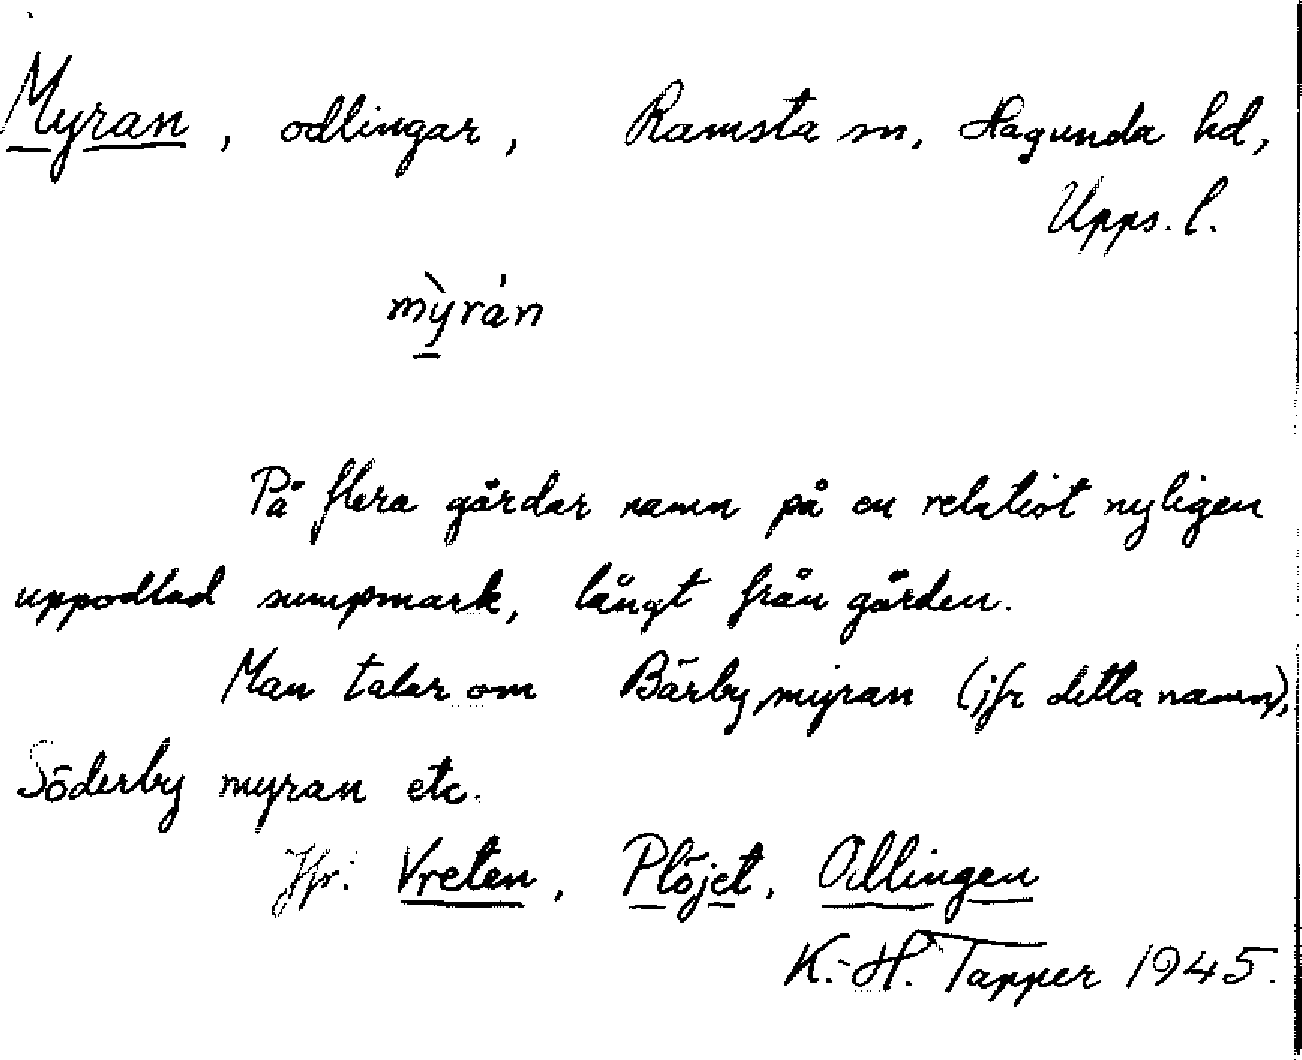 Myran, odlingar, Ramsta sn, Hagunda hd,
Upps. l.
mỳrán
På flera gårdar namn på en relativt nyligen
uppodlad sumpmark, långt från gården.
Man talar om Bärbymyran (jfr detta namn),
Söderby myran etc.
Jfr: Vreten, Plöjet, Odlingen
K.-H. Tapper 1945.